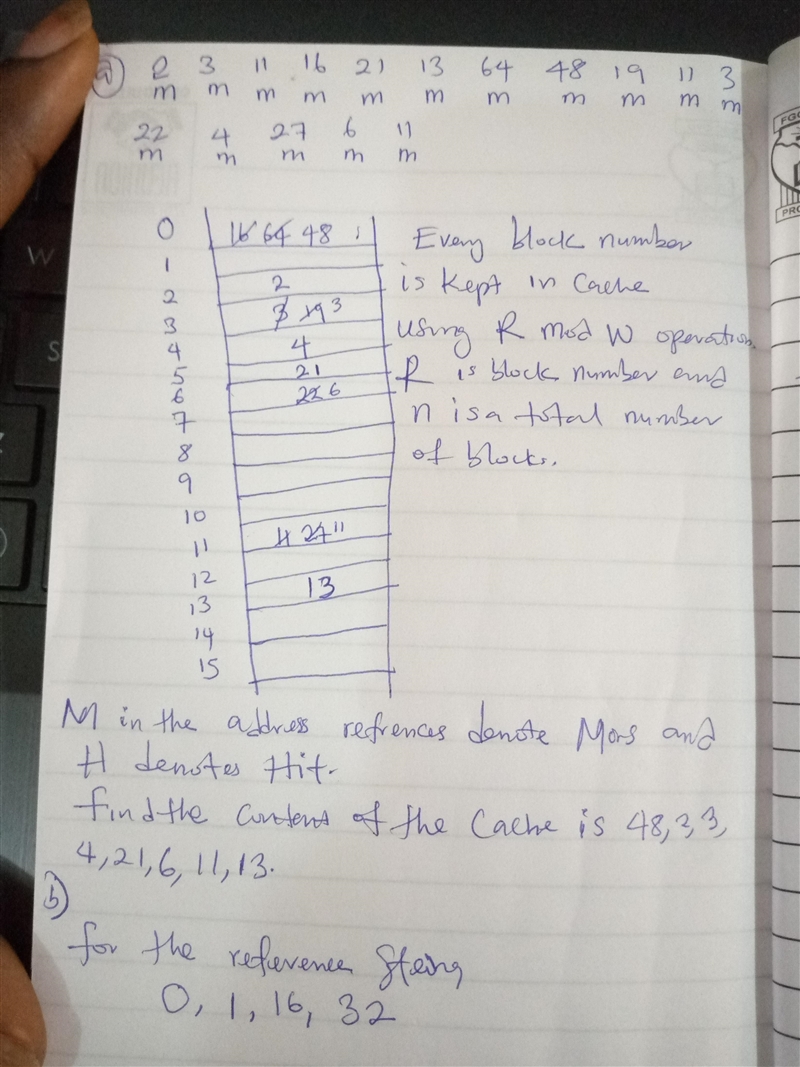 a) 2 3 11 16 21 13 64 48 19 11 3
m m m m m m m m m m m
22 4 27 6 11
m m m m m
0 16 64 48
1
2 2
3 3 19 3
4 4
5 21
6 22 6
7
8
9
10
11 11 27 11
12
13 13
14
15
Every block number
is kept in Cache
using R mod W operation.
R is block number and
n is a total number
of blocks.
M in the address refrences denote and
H denotes Hit.
find the of the Cache is 48, 3,
4, 21, 6, 11, 13.
b)
for the reference
0, 1, 16, 32
W
S
FGC
PRO